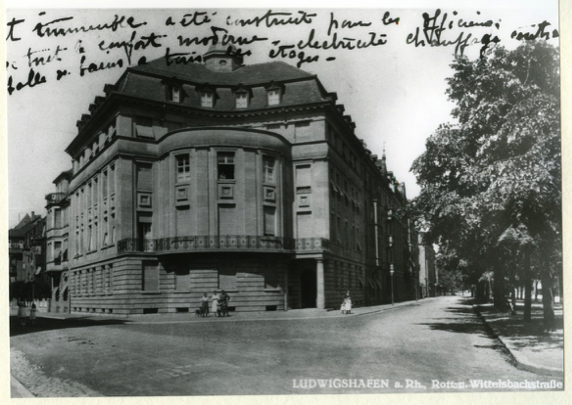 t immeuble a été construit pour les Officiers.
tout le confort moderne - electricité chauffage centra
Salle de bains a tous les étages -
LUDWIGSHAFEN a. Rh., Rott- u. Wittelsbachstraße